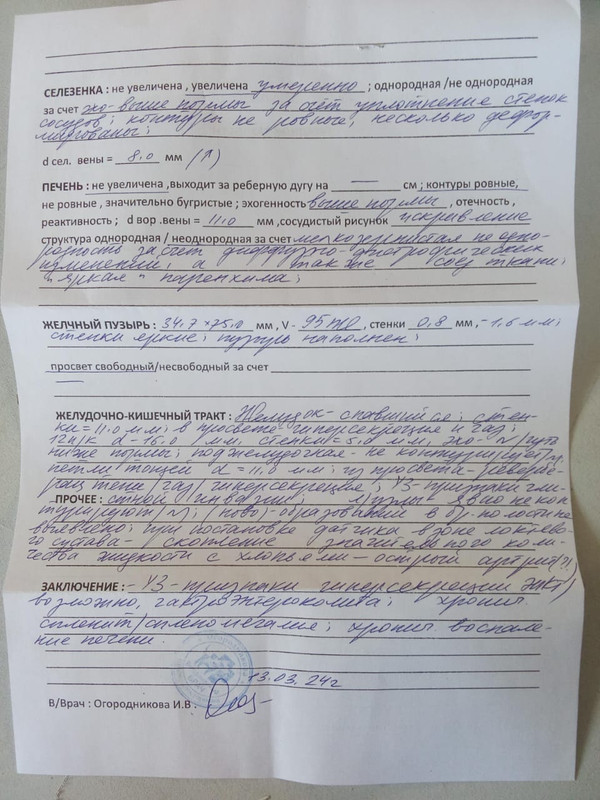 СЕЛЕЗЕНКА : не увеличена , увеличена умеренно ; однородная /не однородная
за счет эхо-выше нормы за счёт уплотнение стенок
сосудов; контуры не ровные, несколько дефор-
мированы;
d сел. вены = 8.0 мм (↑)
ПЕЧЕНЬ : не увеличена ,выходит за реберную дугу на — см ; контуры ровные,
не ровные , значительно бугристые ; эхогенность выше нормы , отечность ,
реактивность ; d вор .вены = 11.0 мм ,сосудистый рисунок искривление
структура однородная / неоднородная за счет мелкозернистая не одно-
родность за счёт диффузно-дистрофических
изменений, а также соед ткани;
"яркая" паренхима;
ЖЕЛЧНЫЙ ПУЗЫРЬ : 34.7 × 75.0 мм , V - 95 , стенки 0,8 мм ,-1,6 мм;
стенки яркие; пузырь наполнен;
просвет свободный/несвободный за счет
—
ЖЕЛУДОЧНО-КИШЕЧНЫЙ ТРАКТ : Желудок- спавшийся; стен-
ки = 11.0 мм; в просвете гиперсекреция и газ;
12п/к d-16.0 мм, стенки = 5.0 мм, эхо
ниже нормы; поджелудочная- не контурирует
петли тощей d = 11.0 мм; из просвета-
тени/газ/гиперсекреция; УЗ-признаки гли-
ПРОЧЕЕ : стной инвазии; л/узлы явно не кон-
турируют ; /ново/-образований в бр. полости не
выявлено; при постановке датчика в зоне локтево-
го сустава- скопление значительного коли-
чества жидкости с хлопьями-острый артрит
ЗАКЛЮЧЕНИЕ : - УЗ-признаки гиперсекреции ЖКТ/
возможно, гастроэнтероколита; хронич
спленит/спленомегалия; хронич воспале-
ние печени.
13.03.24г
В/Врач : Огородникова И.В.